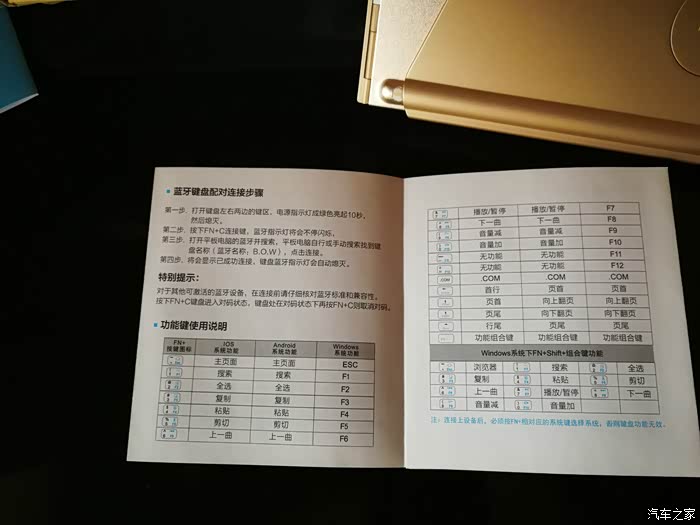 蓝牙键盘配对连接步骤
第一步、打开键盘左右两边的键区，电源指示灯成绿色亮起10秒，
然后熄灭。
第二步、按下FN+C连接键，蓝牙指示灯将会不停闪烁。
第三步、打开平板电脑的蓝牙并搜索，平板电脑自行或手动搜索找到键
盘名称（蓝牙名称：B.O.W），点击连接。
第四步、将会显示已成功连接，键盘蓝牙指示灯会自动熄灭。
特别提示：
对于其他可激活的蓝牙设备，在连接前请仔细核对蓝牙标准和兼容性。
按下FN+C键盘进入对码状态，键盘处在对码状态下再按FN+C则取消对码。
功能键使用说明
FN+ 按键图标 IOS 系统功能 Android 系统功能 Windows 系统功能
主页面 主页面 ESC
搜索 搜索 F1
全选 全选 F2
复制 复制 F3
粘贴 粘贴 F4
剪切 剪切 F5
上一曲 上一曲 F6
播放/暂停 播放/暂停 F7
下一曲 下一曲 F8
音量减 音量减 F9
音量加 音量加 F10
无功能 无功能 F11
无功能 无功能 F12
.COM .COM .COM .COM
首行 页首 页首
页首 向上翻页 向上翻页
页尾 向下翻页 向下翻页
行尾 页尾 页尾
功能组合键 功能组合键 功能组合键
Windows系统下FN+Shift+组合键功能
浏览器 搜索 全选
复制 粘贴 剪切
上一曲 播放/暂停 下一曲
音量减 音量加
注：连接上设备后，必须按FN+相对应的系统键选择系统，否则键盘功能无效。
汽车之家